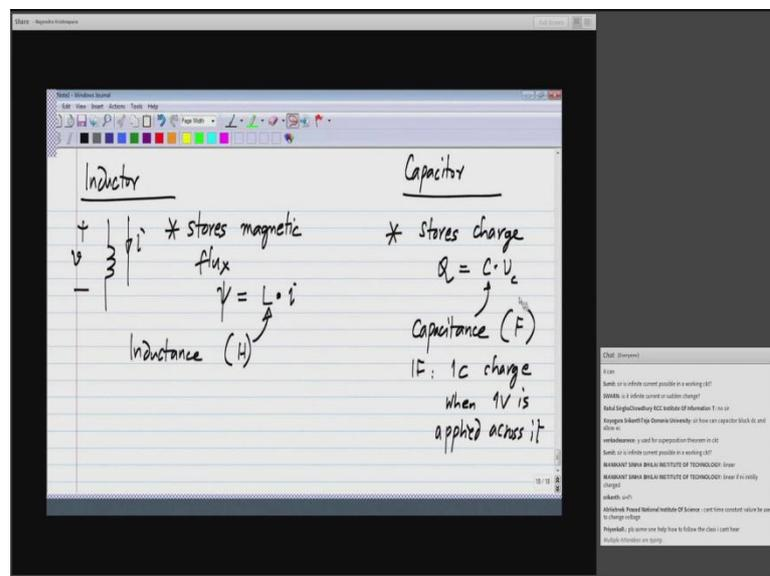 Share - Nagendra Krishnapura
Full Screen
Note2 - Windows Journal
Edit View Insert Actions Tools Help
Page Width
Inductor
Capacitor
+
v
-
i
* stores magnetic
flux
ψ = L · i
Inductance (H)
* stores charge
Q = C · Vc
Capacitance (F)
1F : 1C charge
when 1V is
applied across it
18 / 18
Chat (Everyone)
it can
Sumit: sir is infinite current possible in a working ckt?
SWARN: is it infinite current or sudden change?
Rahul SinghaChowdhury RCC Institute Of Information T: no sir
Koyagura SrikanthTeja Osmania University: sir how can capacitor block dc and allow ac
venkadesanece: y used for superposition theorem in ckt
Sumit: sir is infinite current possible in a working ckt?
MANIKANT SINHA BHILAI INSTITUTE OF TECHNOLOGY: linear
MANIKANT SINHA BHILAI INSTITUTE OF TECHNOLOGY: linear if ni initilly
charged
srikanth:
Abhishek Prasad National Institute Of Science : cant time constant value be use
to change voltage
PriyankaR.: pls some one help how to follow the class i cant hear
Multiple Attendees are typing